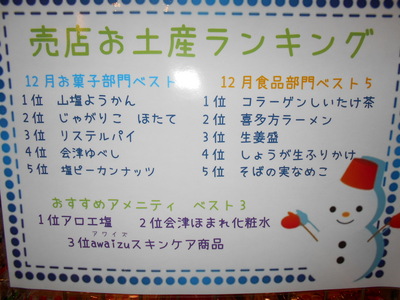 売店お土産ランキング
12月お菓子部門ベスト
1位 山塩ようかん
2位 じゃがりこ ほたて
3位 リステルパイ
4位 会津ゆべし
5位 塩ピーカンナッツ
12月食品部門ベスト5
1位 コラーゲンしいたけ茶
2位 喜多方ラーメン
3位 生姜盛
4位 しょうが生ふりかけ
5位 そばの実なめこ
おすすめアメニティ ベスト3
1位アロエ塩 2位会津ほまれ化粧水
アワイズ
3位awaizuスキンケア商品